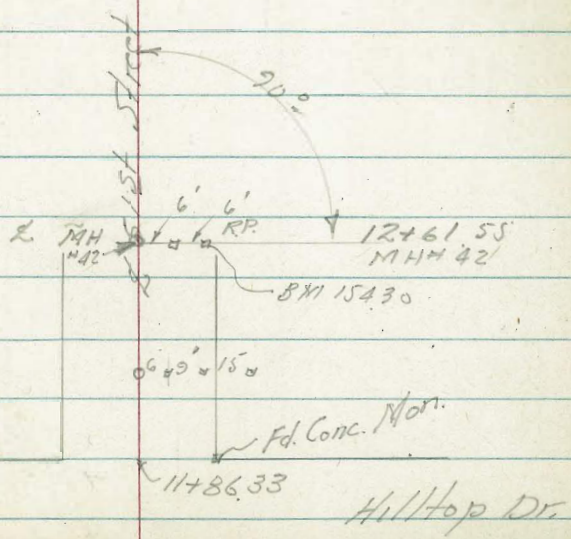 90°
1st Street
6' 6'
R.P.
MH
#42
12+61.55
MH# 42
BM 154.30
6 9' 15
Fd. Conc. Mon.
11+86.33
Hilltop Dr.